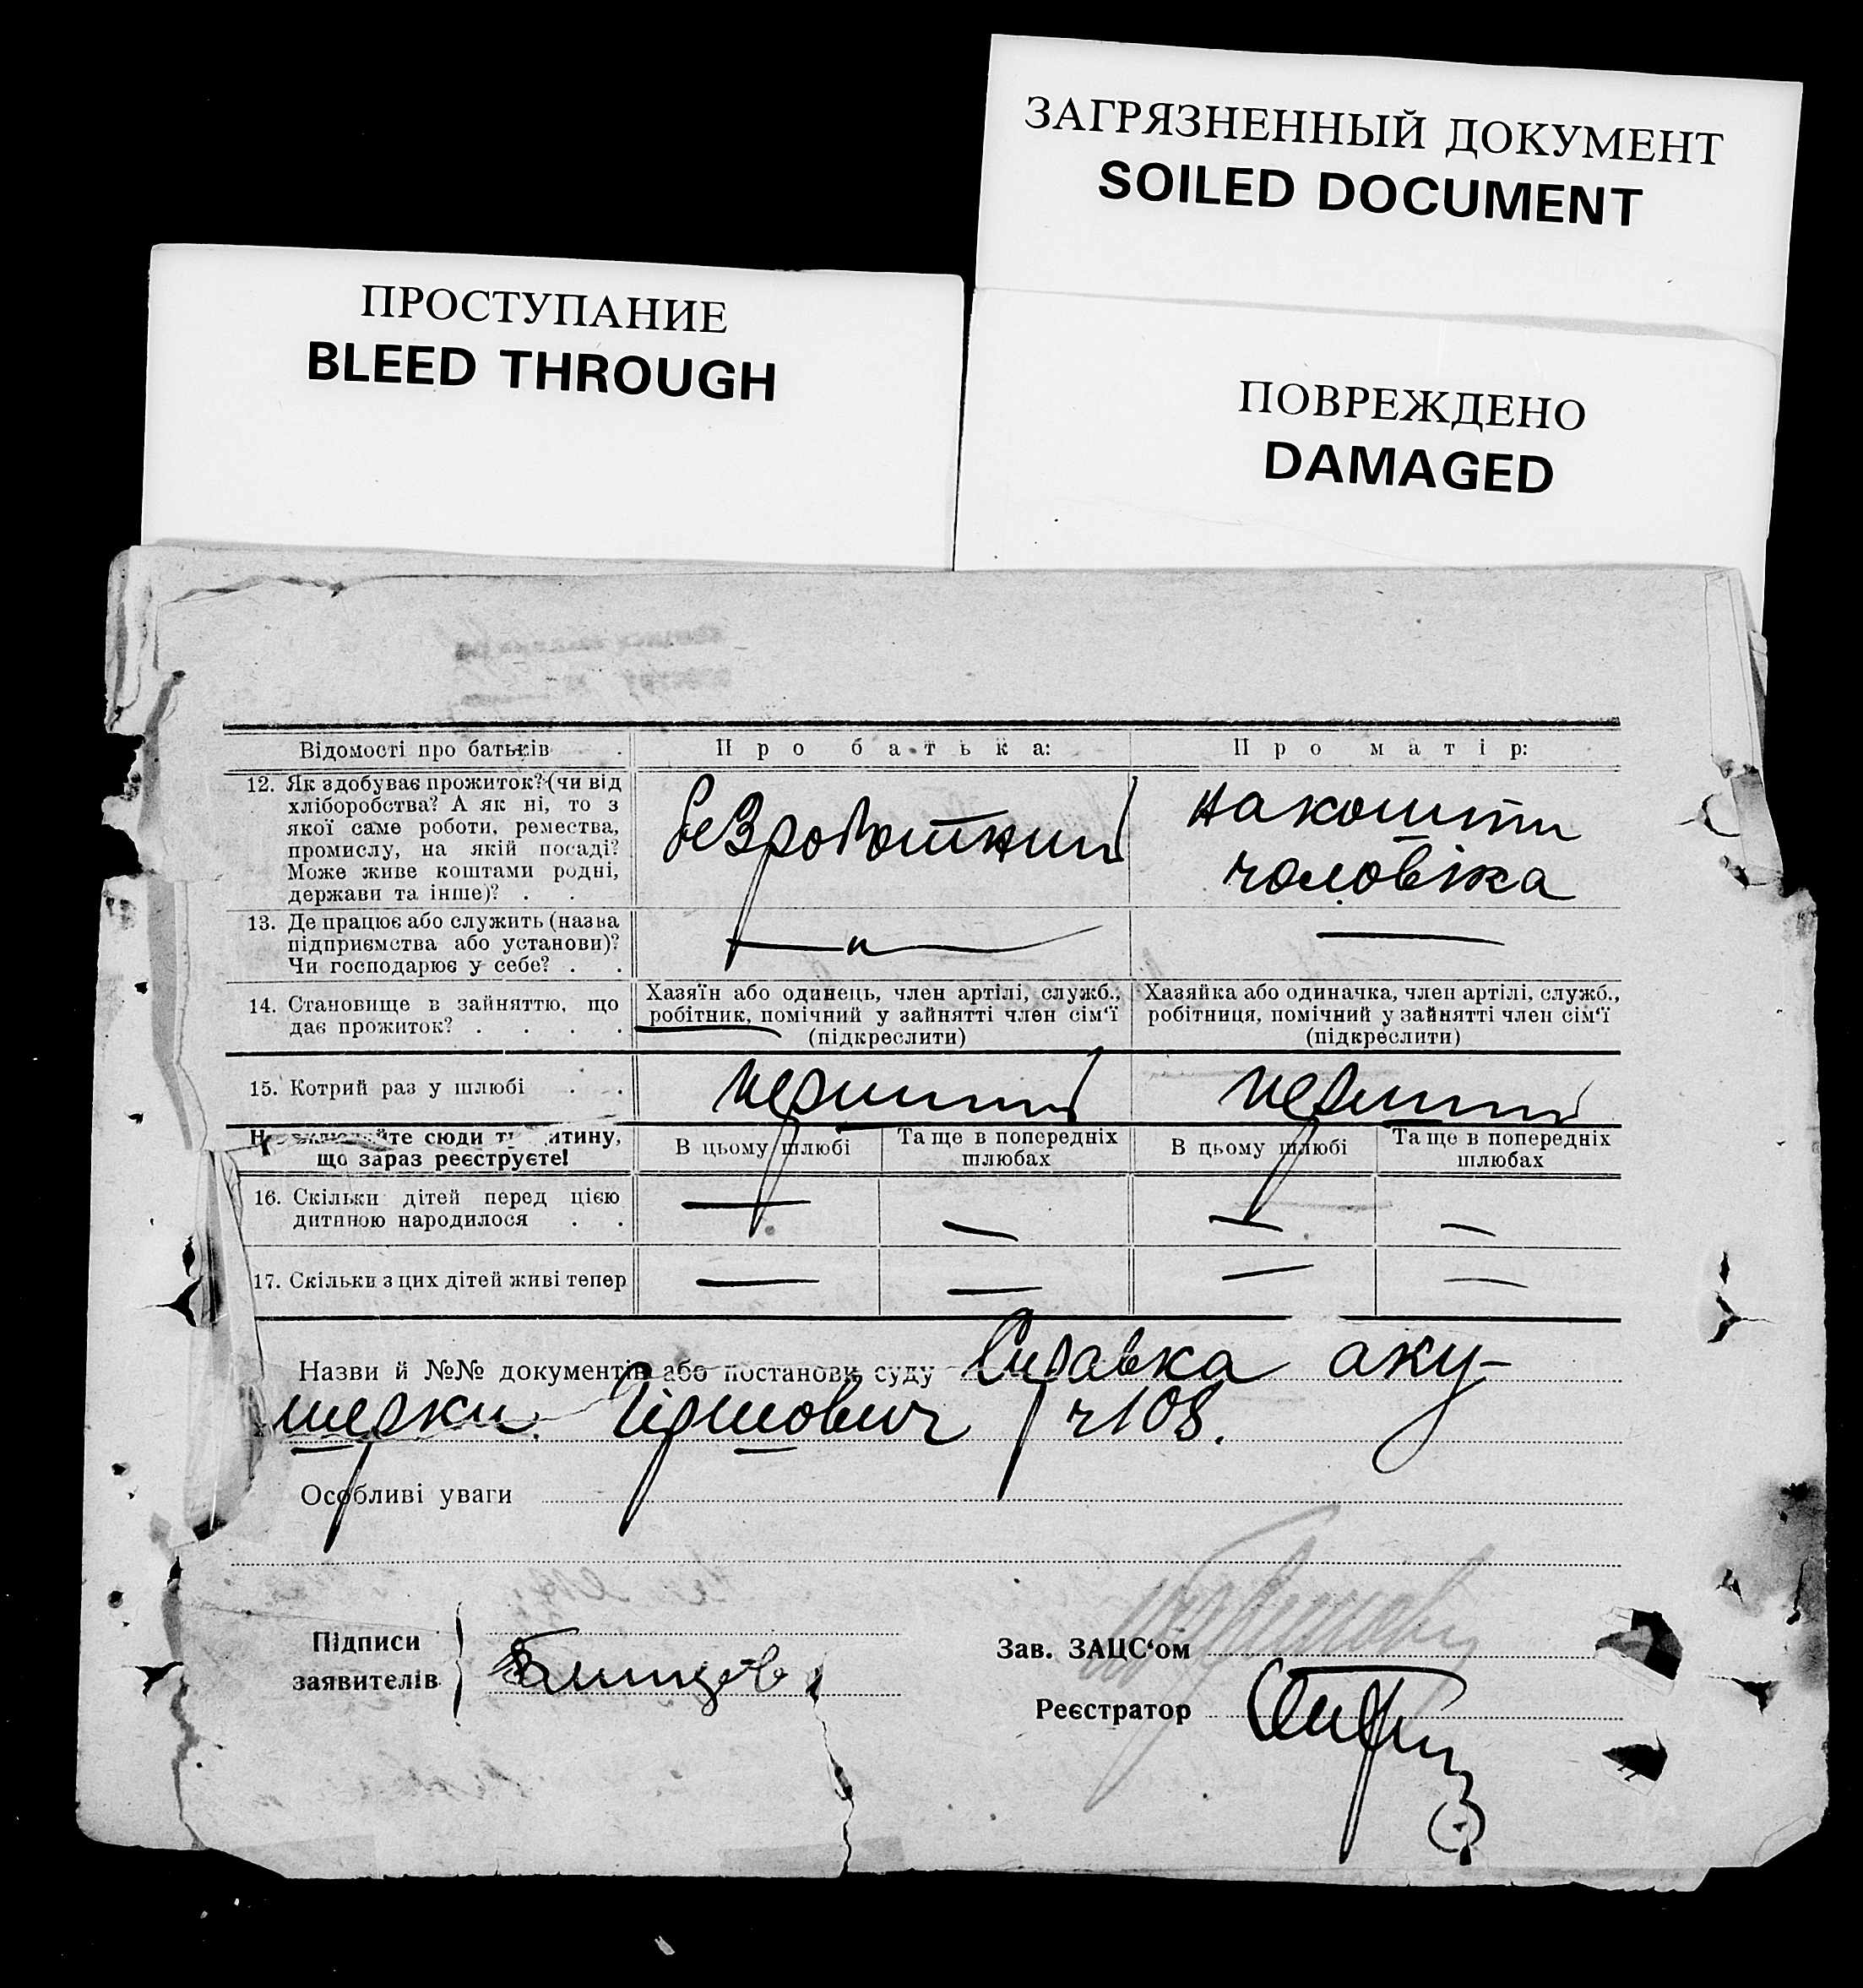 ЗАГРЯЗНЕННЫЙ ДОКУМЕНТ
SOILED DOCUMENT
ПРОСТУПАНИЕ
BLEED THROUGH
ПОВРЕЖДЕНО
DAMAGED
Відомості про батьків
Про батька:
Про матір:
12. Як здобуває прожиток? (чи від
хліборобства? А як ні, то з
якої саме роботи, ремества,
промислу, на якій посаді?
Може живе коштами родні,
держави та інше)? . .
безроботний
на кошти
чоловіка
13. Де працює або служить (назва
підприємства або установи)?
Чи господарює у себе? . .
— „ —
—
14. Становище в зайняттю, що
дає прожиток? . . . .
Хазяїн або одинець, член артілі, служб.,
робітник, помічний у зайнятті член сім'ї
(підкреслити)
Хазяйка або одиначка, член артілі, служб.,
робітниця, помічний у зайнятті член сім'ї
(підкреслити)
15. Котрий раз у шлюбі . .
перший
перший
сюди
що зараз реєструєте!
В цьому шлюбі
Та ще в попередніх
шлюбах
В цьому шлюбі
Та ще в попередніх
шлюбах
16. Скільки дітей перед цією
дитиною народилося . .
— — — —
17. Скільки з цих дітей живі тепер
— — — —
Назви й №№ документів або постанови суду Справка аку-
шерки Гіршович ч 108.
Особливі уваги
Підписи
заявителів
Зав. ЗАЦС'ом
Реєстратор